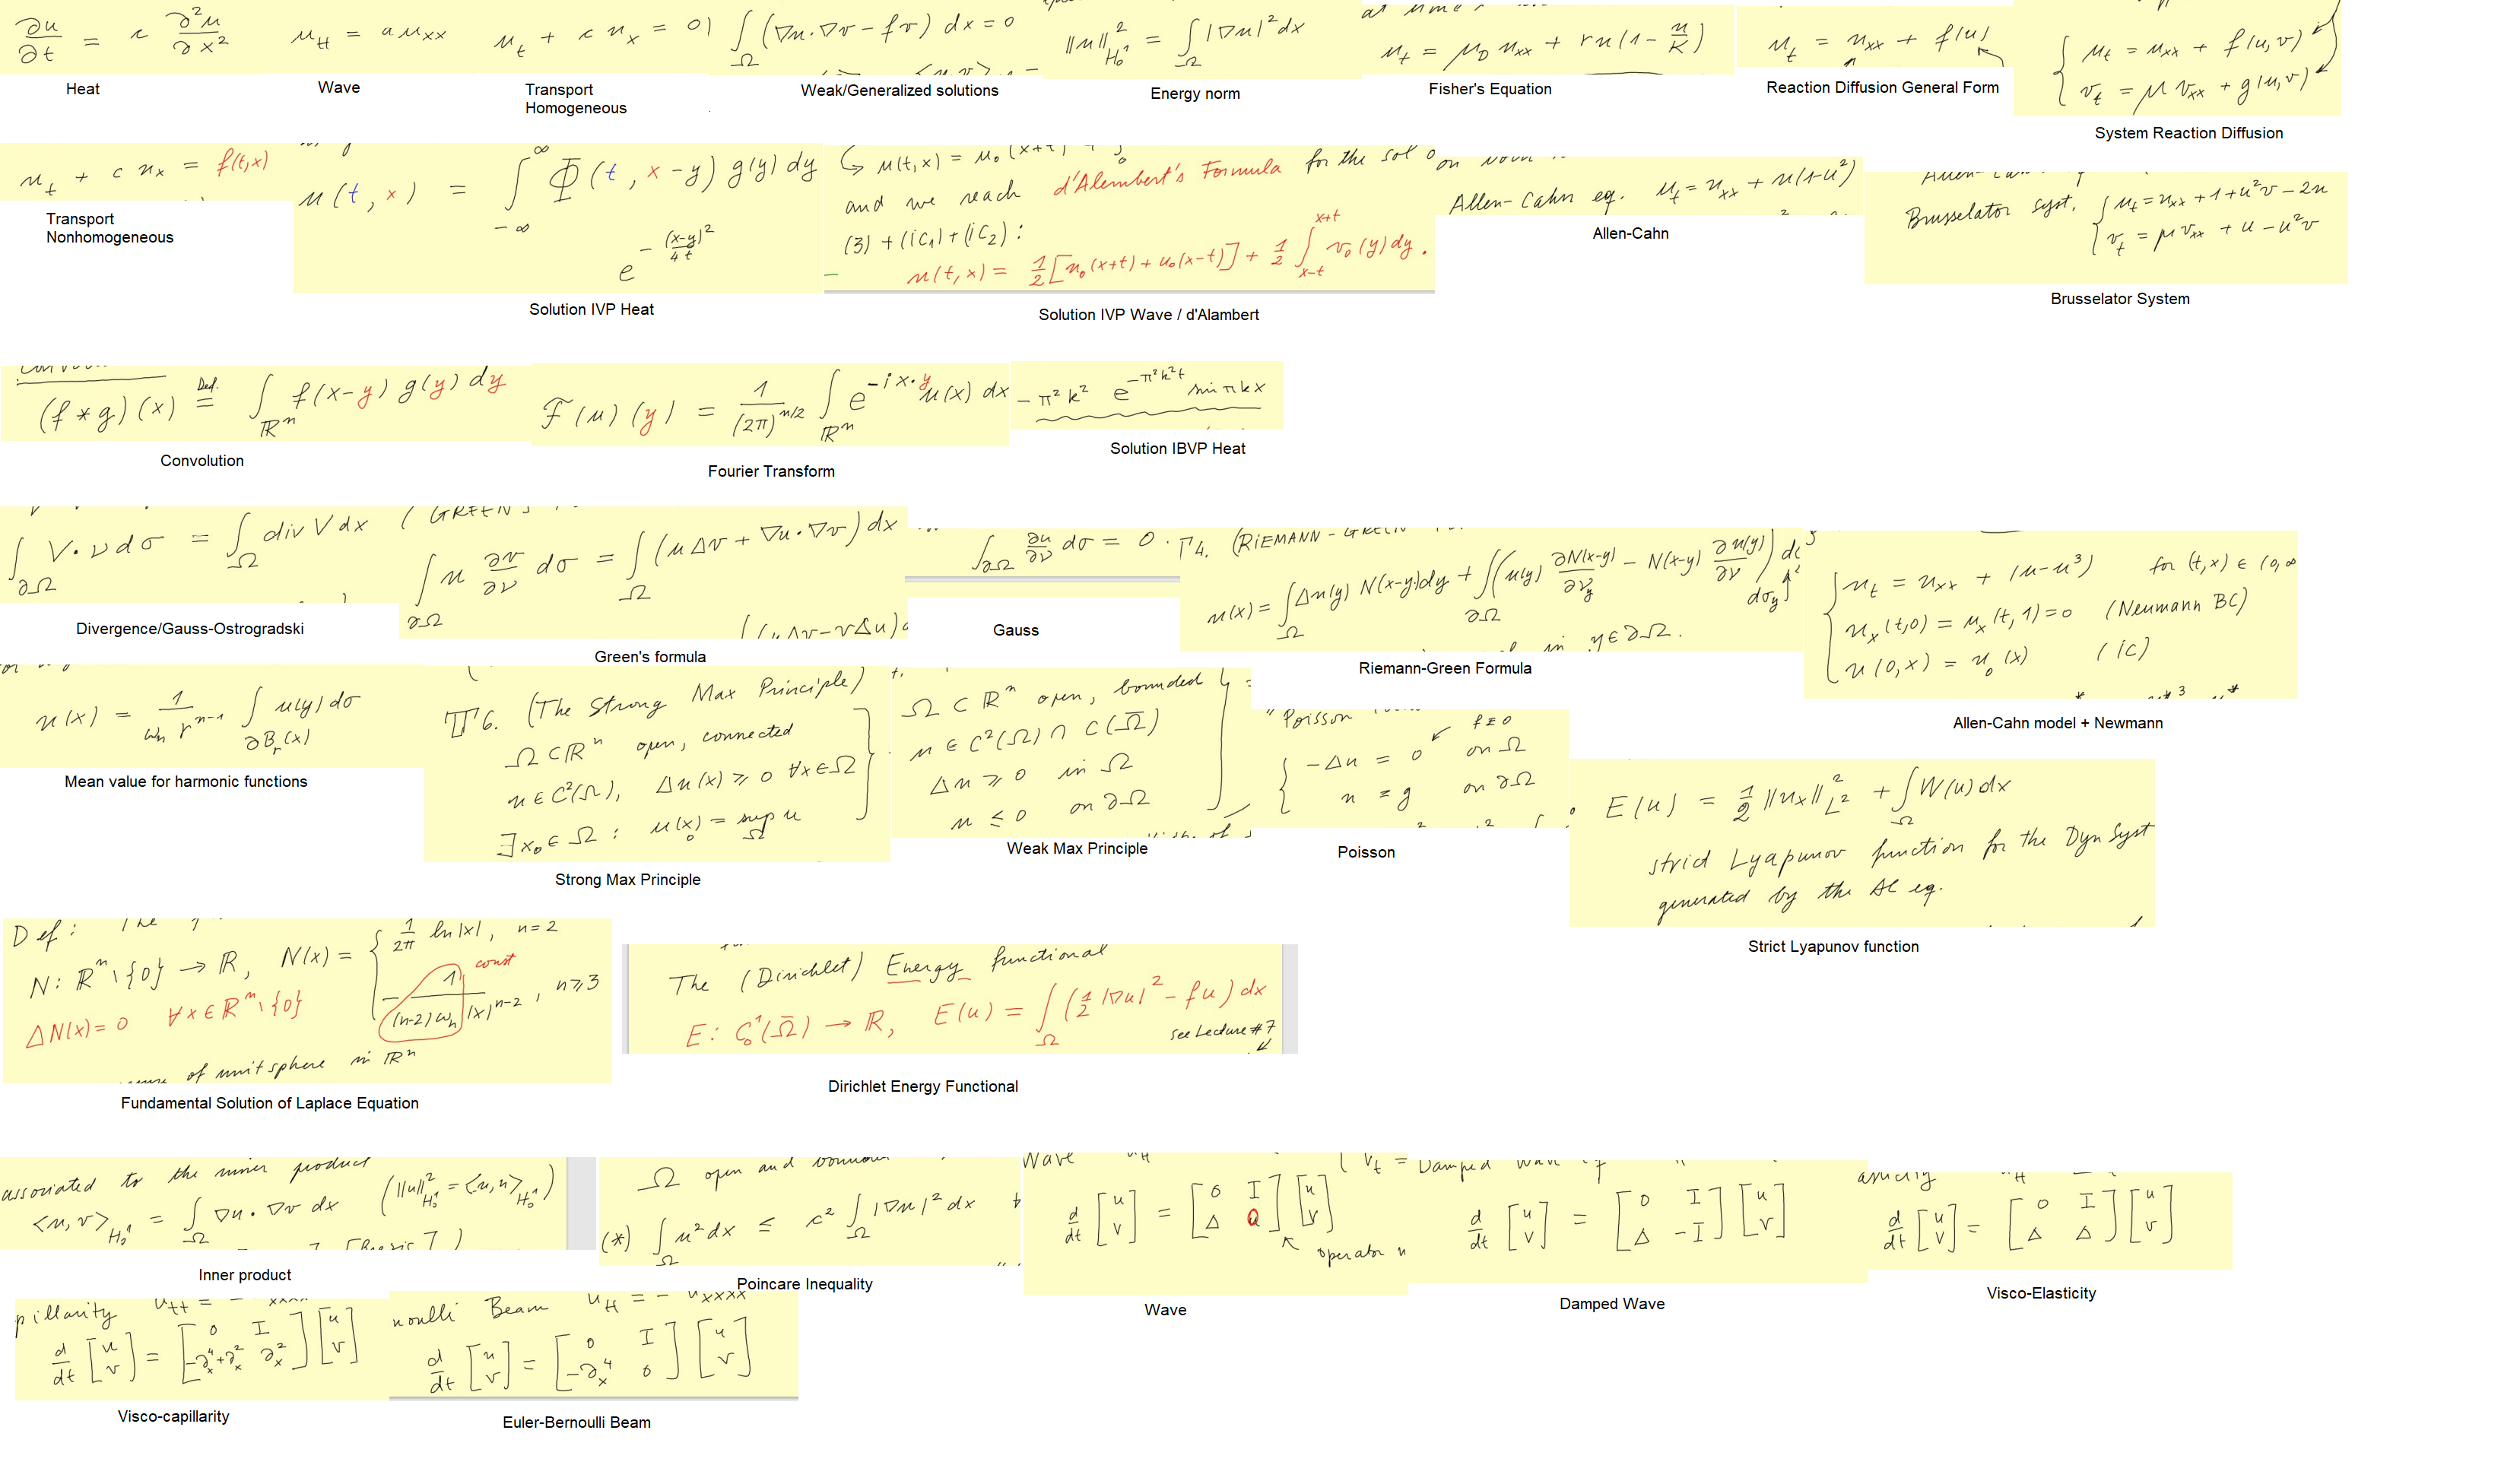 ∂u/∂t = c ∂²u/∂x²
Heat
u_tt = a u_xx
Wave
u_t + c u_x = 0)
Transport
Homogeneous
∫_Ω (∇u·∇v − fv) dx = 0
Weak/Generalized solutions
‖u‖²_{H₀¹} = ∫_Ω |∇u|² dx
Energy norm
at time
u_t = μ_D u_xx + ru(1 − u/K)
Fisher's Equation
u_t = u_xx + f(u)
Reaction Diffusion General Form
{ u_t = u_xx + f(u,v)
v_t = μ v_xx + g(u,v)
System Reaction Diffusion
u_t + c u_x = f(t,x)
Transport
Nonhomogeneous
u(t,x) = ∫_{−∞}^{∞} Φ(t, x−y) g(y) dy
e^{−(x−y)²/4t}
Solution IVP Heat
↳ u(t,x) = u₀(x+t)
and we reach d'Alembert's Formula for the sol
(3) + (ic₁) + (ic₂) :
u(t,x) = ½[u₀(x+t) + u₀(x−t)] + ½ ∫_{x−t}^{x+t} v₀(y) dy.
Solution IVP Wave / d'Alambert
Allen-Cahn eq. u_t = u_xx + u(1−u²)
Allen-Cahn
Brusselator syst. { u_t = u_xx + 1 + u²v − 2u
v_t = μ v_xx + u − u²v
Brusselator System
(f * g)(x) =^{Def.} ∫_{ℝⁿ} f(x−y) g(y) dy
Convolution
F(u)(y) = 1/(2π)^{n/2} ∫_{ℝⁿ} e^{−ix·y} u(x) dx
Fourier Transform
−π²k² e^{−π²k²t} sin πkx
Solution IBVP Heat
∫_{∂Ω} V·ν dσ = ∫_Ω div V dx
Divergence/Gauss-Ostrogradski
(GREEN'S
∫_{∂Ω} u ∂v/∂ν dσ = ∫_Ω (uΔv + ∇u·∇v) dx
Green's formula
∫_{∂Ω} ∂u/∂ν dσ = 0.
Gauss
T4. (RIEMANN-GREEN
u(x) = ∫_Ω Δu(y) N(x−y) dy + ∫_{∂Ω} (u(y) ∂N(x−y)/∂ν_y − N(x−y) ∂u(y)/∂ν) dσ
dσ_y
in y∈∂Ω.
Riemann-Green Formula
{ u_t = u_xx + (u−u³) for (t,x) ∈ (0,∞
u_x(t,0) = u_x(t,1) = 0 (Neumann BC)
u(0,x) = u₀(x) (ic)
Allen-Cahn model + Newmann
u(x) = 1/(ω_n r^{n−1}) ∫_{∂B_r(x)} u(y) dσ
Mean value for harmonic functions
T6. (The Strong Max Principle)
Ω⊂ℝⁿ open, connected
u∈C²(Ω), Δu(x) ⩾ 0 ∀x∈Ω
∃x₀∈Ω : u(x₀) = sup_Ω u
Strong Max Principle
Ω ⊂ ℝⁿ open, bounded
u ∈ C²(Ω) ∩ C(Ω̄)
Δu ⩾ 0 in Ω
u ≤ 0 on ∂Ω
Weak Max Principle
"Poisson
f≡0
{ −Δu = 0 on Ω
u = g on ∂Ω
Poisson
E(u) = ½ ‖u_x‖²_{L²} + ∫_Ω W(u) dx
strict Lyapunov function for the Dyn Syst
generated by the AC eq.
Strict Lyapunov function
Def: The
N: ℝⁿ\{0} → ℝ, N(x) = { 1/2π ln|x|, n=2
−1/((n−2)ω_n |x|^{n−2}), n⩾3
const
ΔN(x) = 0 ∀x∈ℝⁿ\{0}
of unit sphere in ℝⁿ
Fundamental Solution of Laplace Equation
The (Dirichlet) Energy functional
E: C₀¹(Ω̄) → ℝ, E(u) = ∫_Ω (½|∇u|² − fu) dx
see Lecture #7
Dirichlet Energy Functional
associated to the inner product
⟨u,v⟩_{H₀¹} = ∫_Ω ∇u·∇v dx (‖u‖²_{H₀¹} = ⟨u,u⟩_{H₀¹})
Inner product
Ω open and bounded
(*) ∫_Ω u² dx ≤ c² ∫_Ω |∇u|² dx
Poincare Inequality
Wave u_tt
d/dt [u v] = [0 I Δ 0] [u v]
operator
Wave
v_t = Damped wave eq
d/dt [u v] = [0 I Δ −I] [u v]
Damped Wave
d/dt [u v] = [0 I Δ Δ] [u v]
Visco-Elasticity
pillarity u_tt = − xxxx
d/dt [u v] = [0 I −∂_x⁴+∂_x² ∂_x²] [u v]
Visco-capillarity
noulli Beam u_tt = − u_xxxx
d/dt [u v] = [0 I −∂_x⁴ 0] [u v]
Euler-Bernoulli Beam